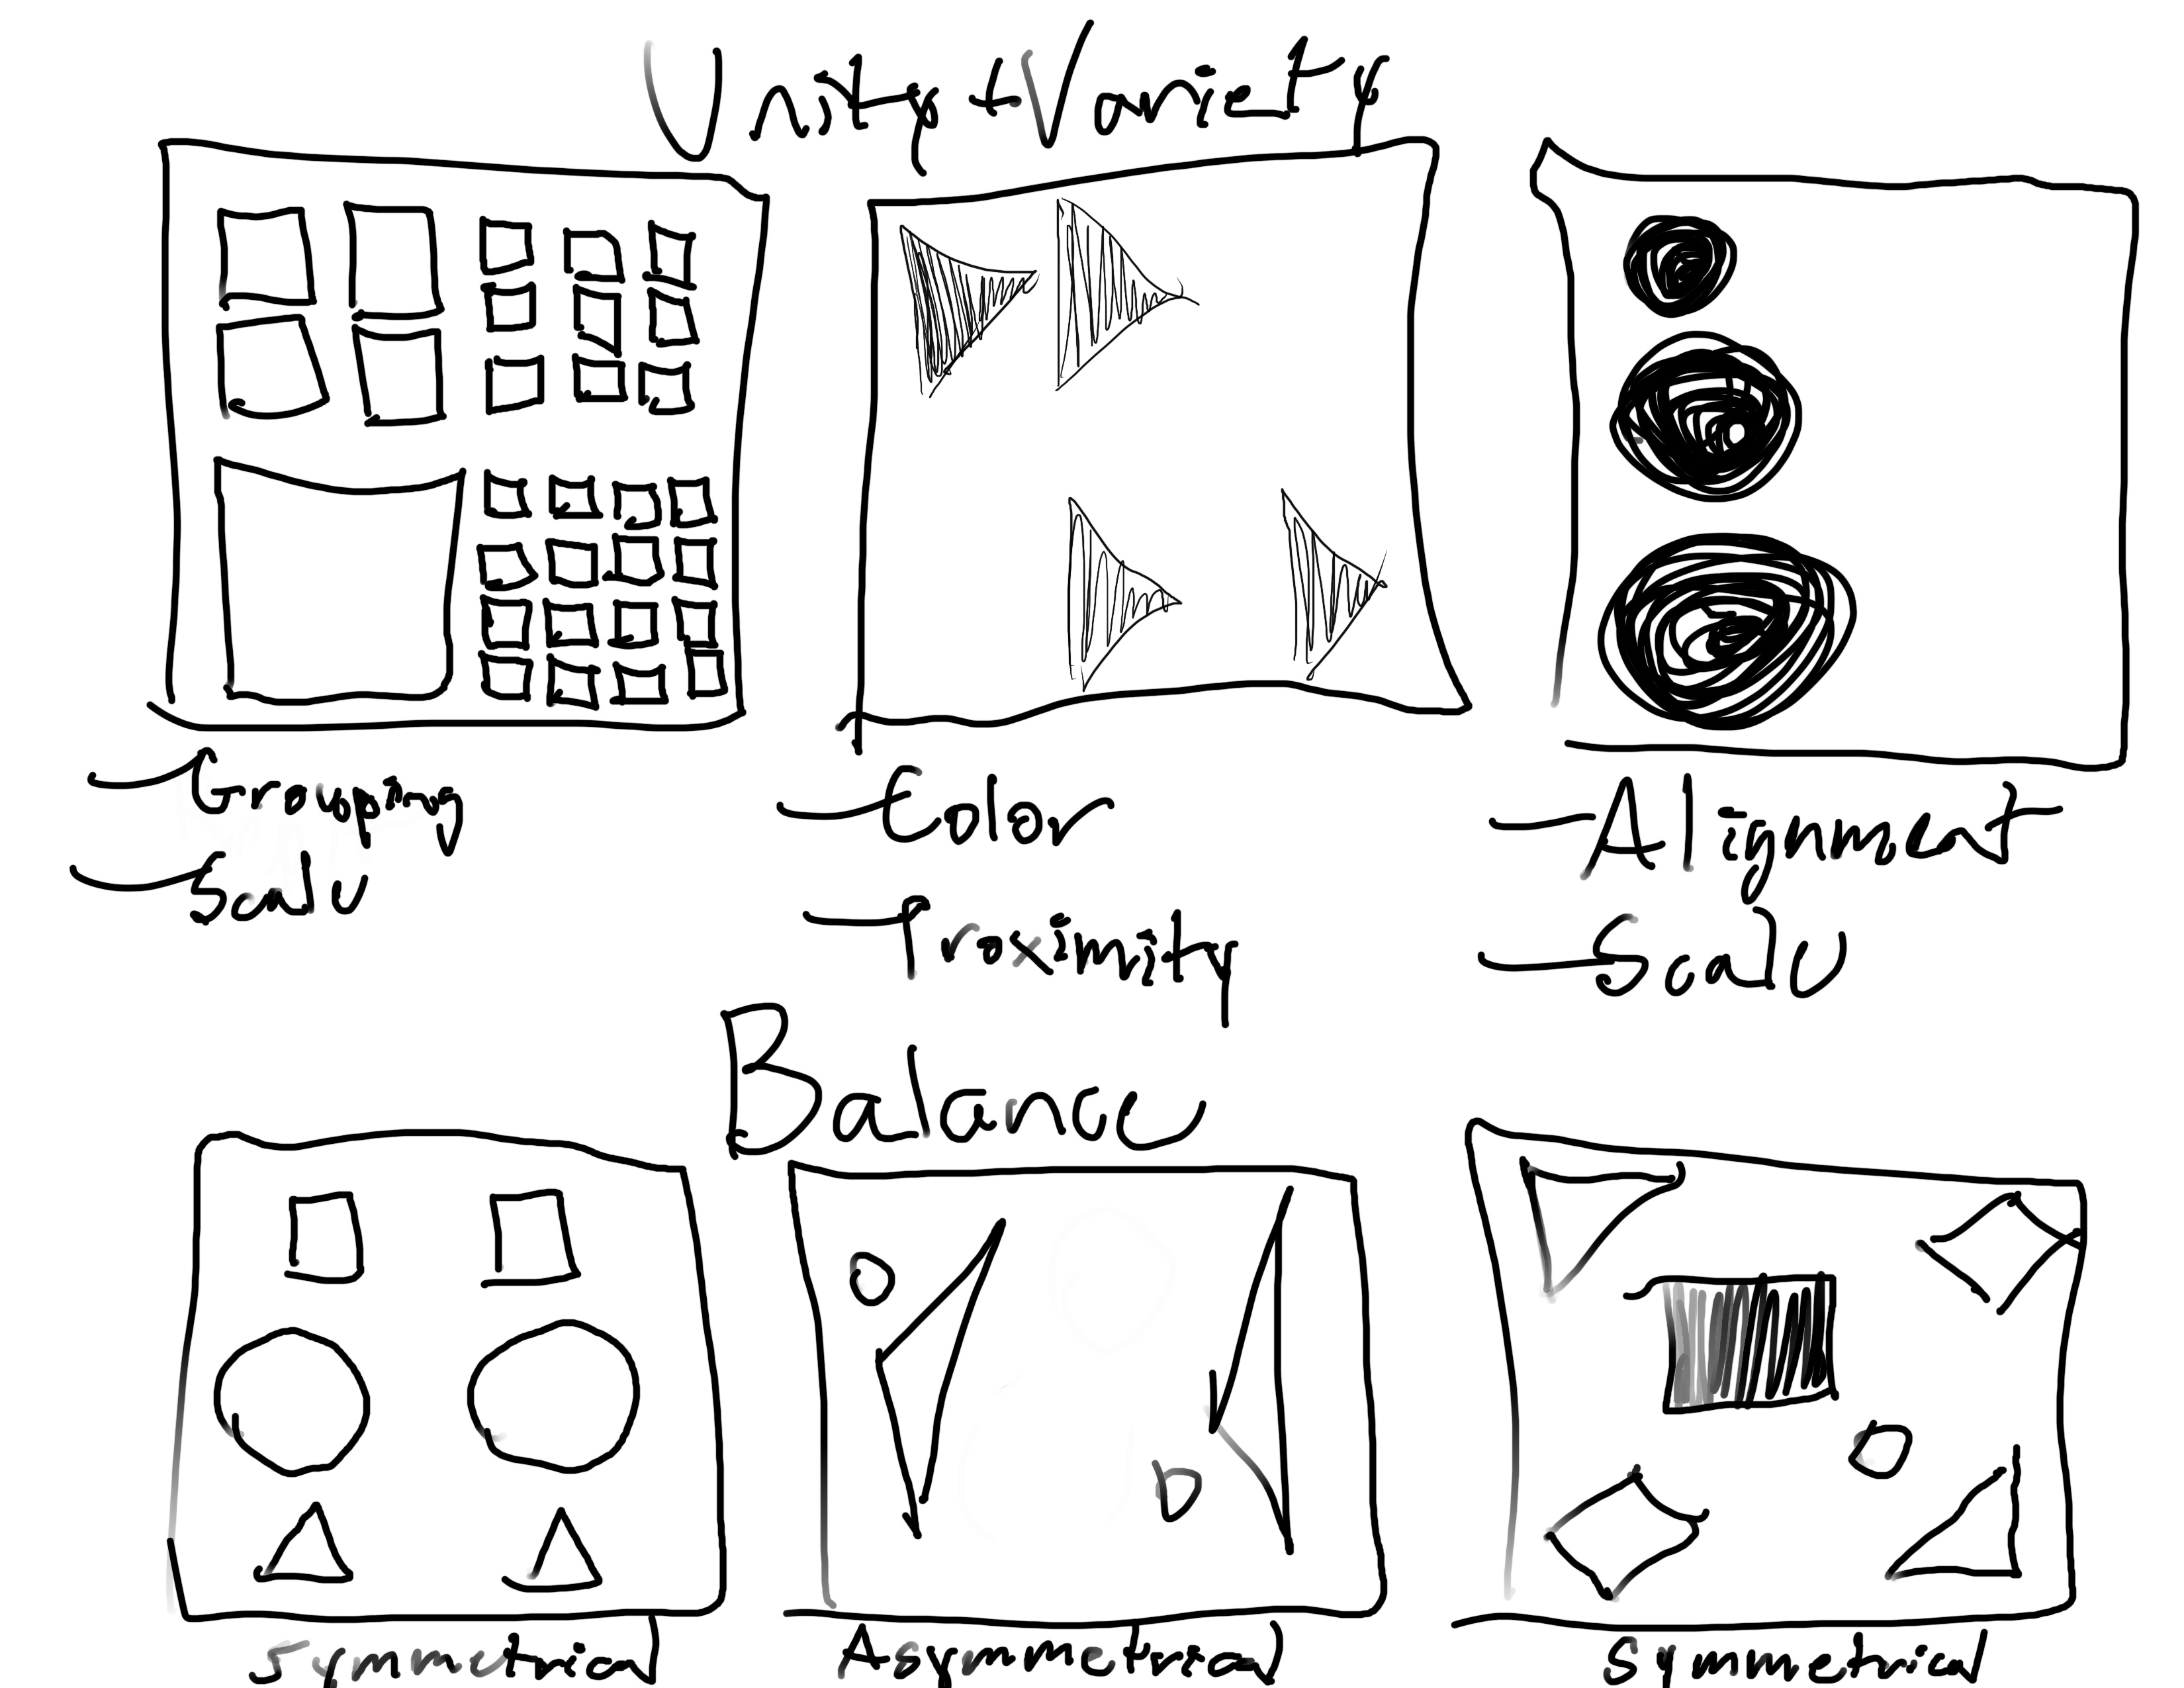 Unity + Variety
- Grouping
- Scale
- Color
- Proximity
- Alignment
- Scale
Balance
Symmetrical
Asymmetrical
Symmetrical